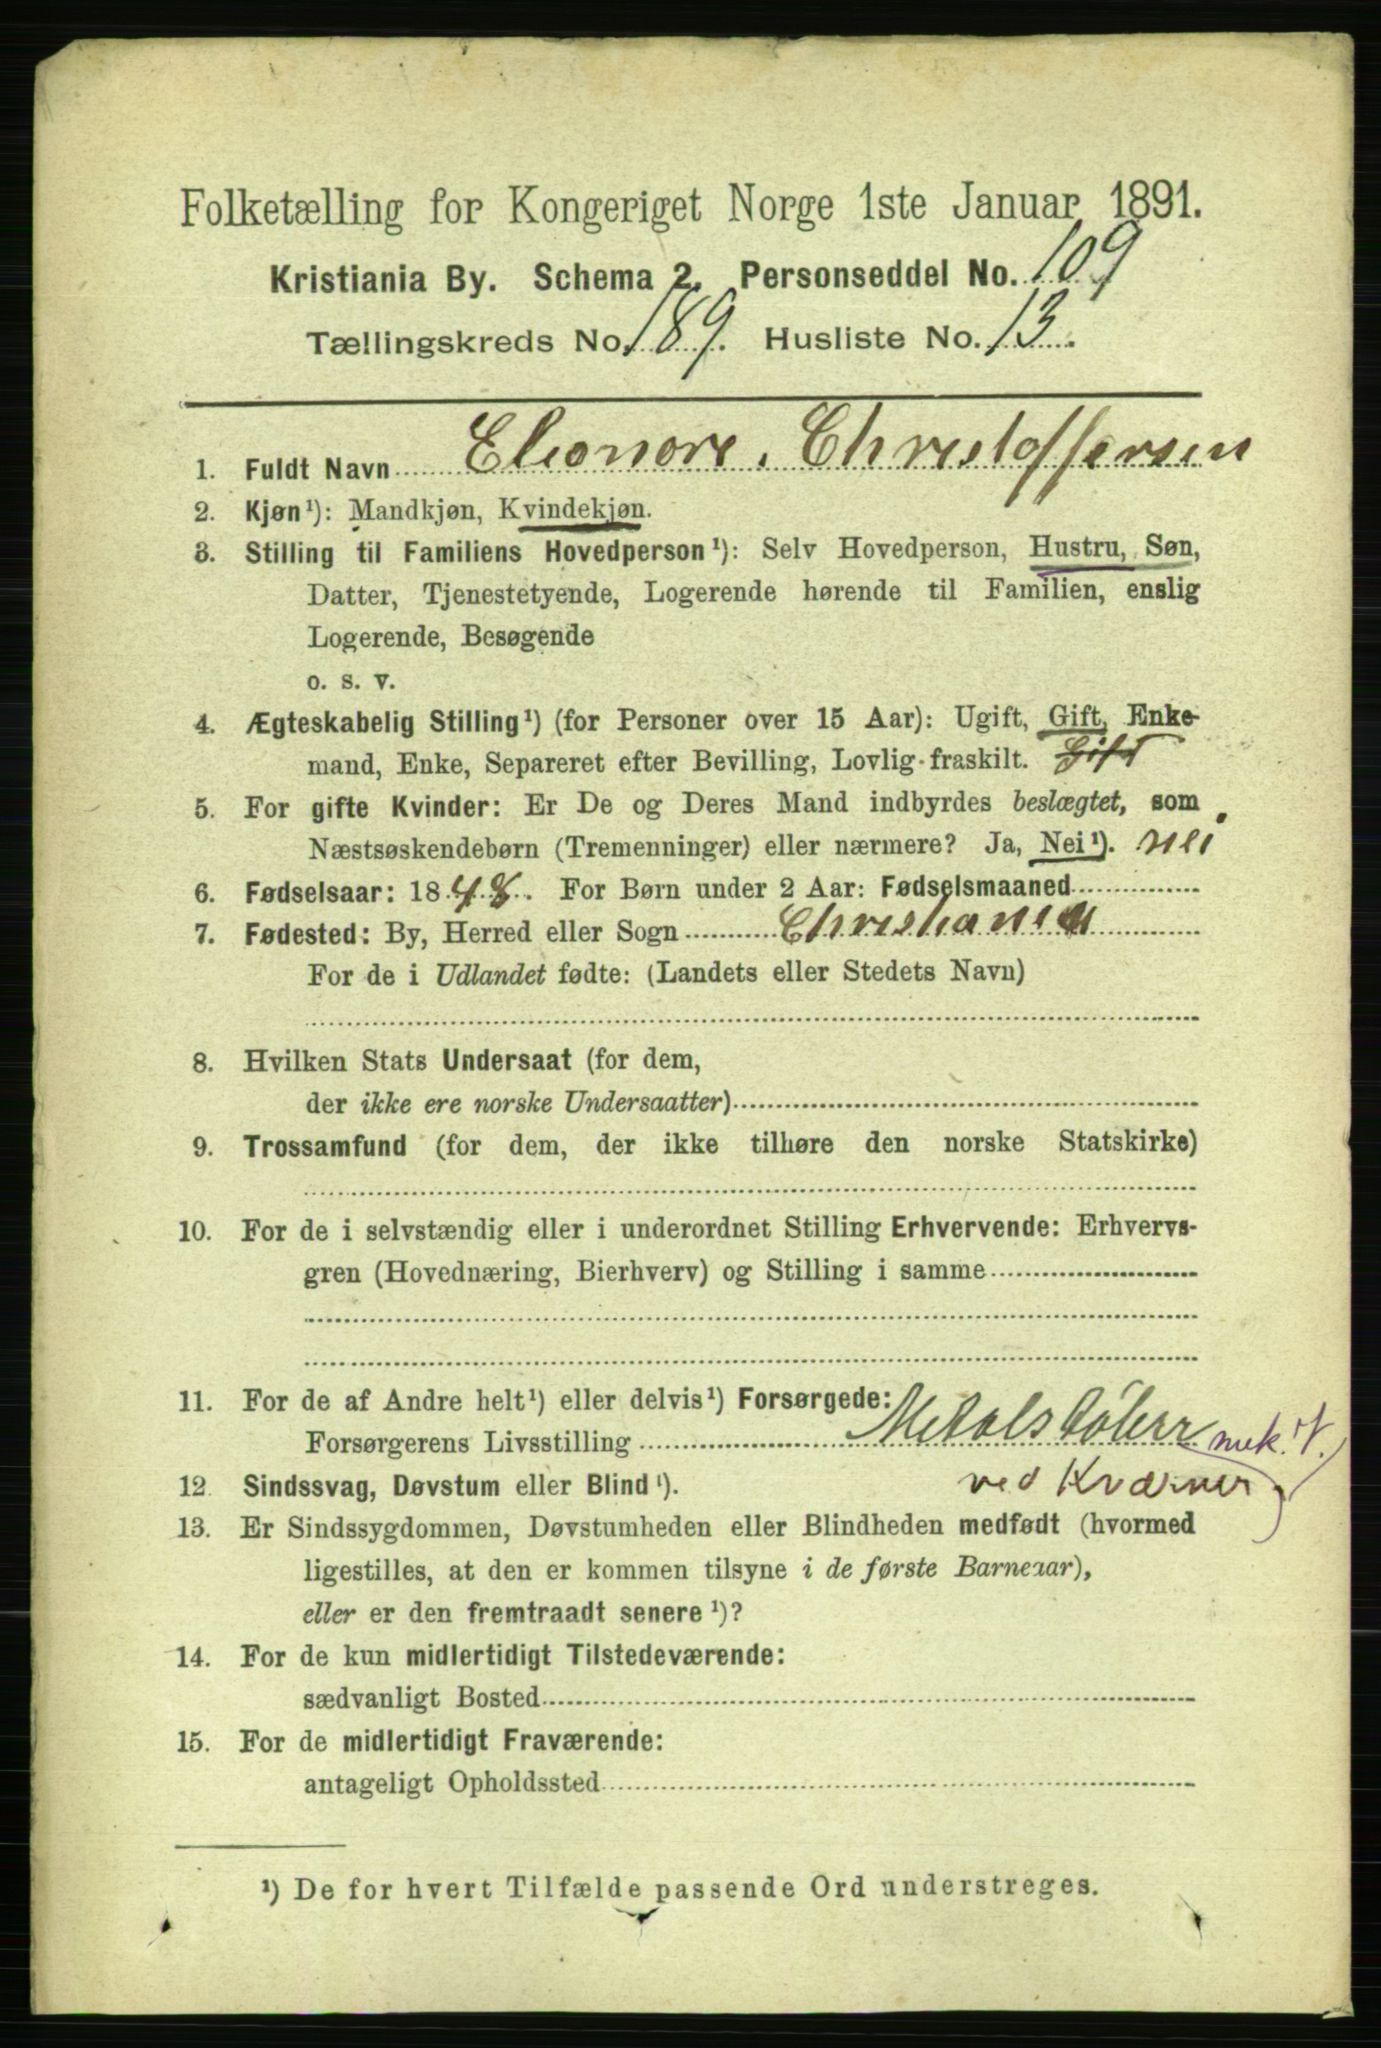 Folketælling for Kongeriget Norge 1ste Januar 1891.
Kristiania By. Schema 2. Personseddel No. 109
Tællingskreds No. 189. Husliste No. 13.
1. Fuldt Navn Eleonore Christoffersen
2. Kjøn¹): Mandkjøn, Kvindekjøn.
3. Stilling til Familiens Hovedperson¹): Selv Hovedperson, Hustru, Søn,
Datter, Tjenestetyende, Logerende hørende til Familien, enslig
Logerende, Besøgende
o. s. v.
4. Ægteskabelig Stilling¹) (for Personer over 15 Aar): Ugift, Gift, Enke-
mand, Enke, Separeret efter Bevilling, Lovlig fraskilt. Gift
5. For gifte Kvinder: Er De og Deres Mand indbyrdes beslægtet, som
Næstsøskendebørn (Tremenninger) eller nærmere? Ja, Nei¹). nei
6. Fødselsaar: 1848. For Børn under 2 Aar: Fødselsmaaned
7. Fødested: By, Herred eller Sogn Christiania
For de i Udlandet fødte: (Landets eller Stedets Navn)
8. Hvilken Stats Undersaat (for dem,
der ikke ere norske Undersaatter)
9. Trossamfund (for dem, der ikke tilhøre den norske Statskirke)
10. For de i selvstændig eller i underordnet Stilling Erhvervende: Erhvervs-
gren (Hovednæring, Bierhverv) og Stilling i samme
11. For de af Andre helt¹) eller delvis¹) Forsørgede:
Forsørgerens Livsstilling Metalstöberr mek. V.
ved Kværner
12. Sindssvag, Døvstum eller Blind¹).
13. Er Sindssygdommen, Døvstumheden eller Blindheden medfødt (hvormed
ligestilles, at den er kommen tilsyne i de første Barneaar),
eller er den fremtraadt senere¹)?
14. For de kun midlertidigt Tilstedeværende:
sædvanligt Bosted
15. For de midlertidigt Fraværende:
antageligt Opholdssted
¹) De for hvert Tilfælde passende Ord understreges.